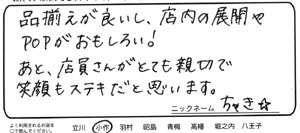 品揃えが良いし、店内の展開や
POPがおもしろい!
あと、店員さんがとても親切で
笑顔もステキだと思います。
ニックネーム ちゃき☆
よく利用されるお店を
○で囲んでください。 立川 小作 羽村 昭島 青梅 高幡 堀之内 八王子